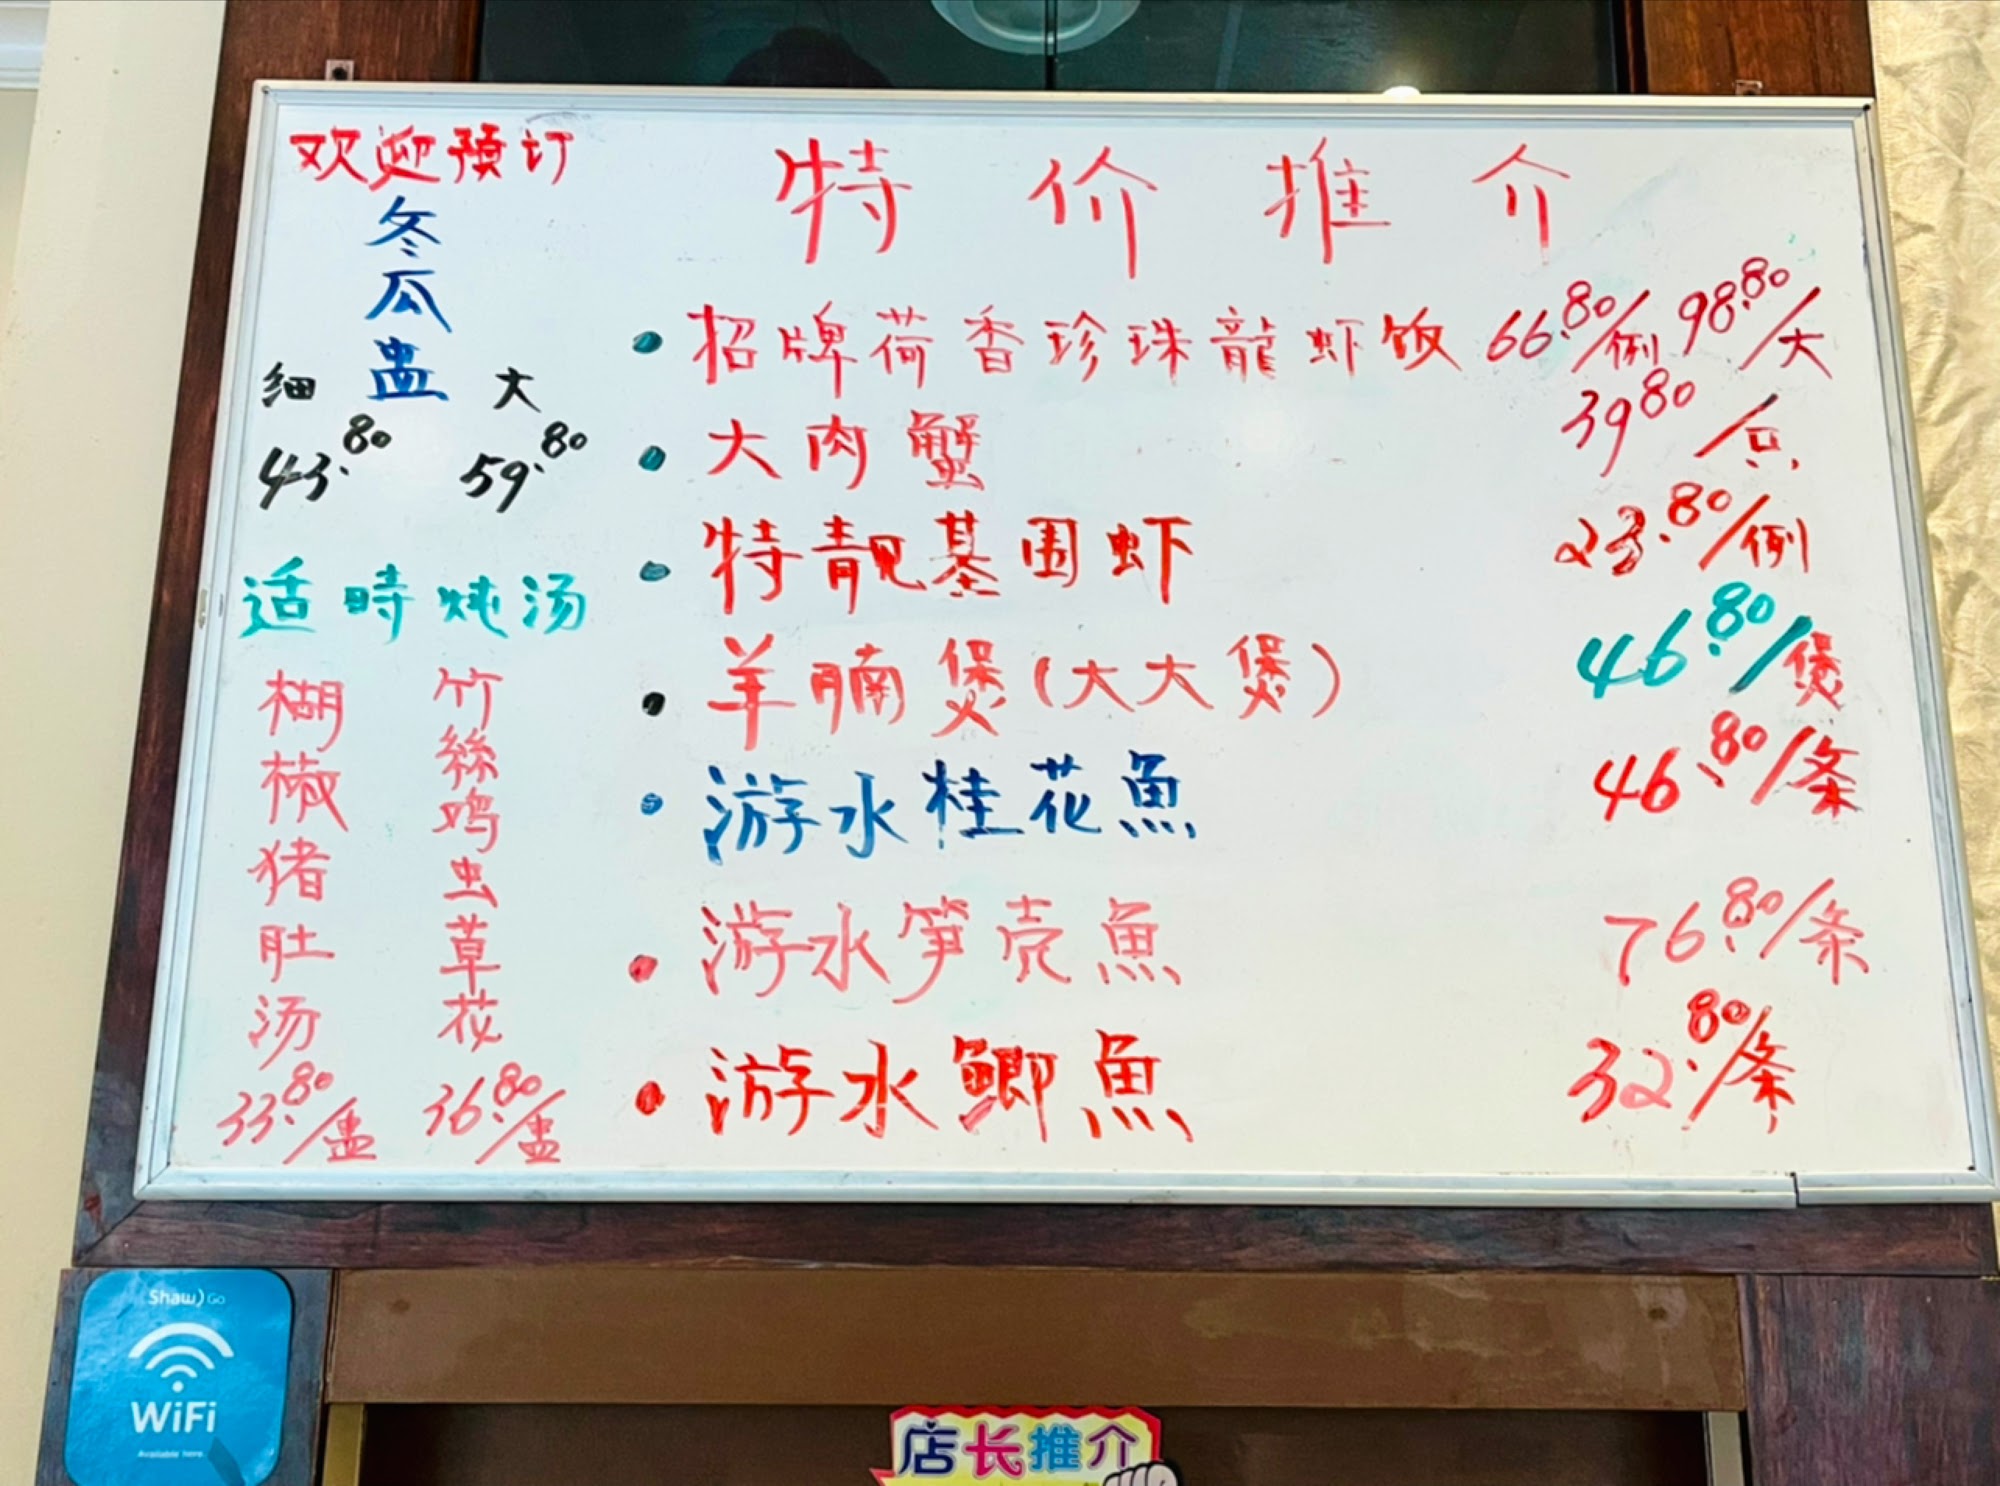 欢迎预订
冬瓜盅
细 大
43.80 59.80
适時炖汤
楜椒猪肚汤
33.80/盅
竹絲鸡虫草花
36.80/盅
特价推介
• 招牌荷香珍珠龍虾饭 66.80/例 98.80/大
• 大肉蟹 3980/只
• 特靓基围虾 23.80/例
• 羊腩煲(大大煲) 46.80/煲
• 游水桂花魚 46.80/条
• 游水笋壳魚 76.80/条
• 游水鲫魚 32.80/条
Shaw) Go
WiFi
Available here
店长推介